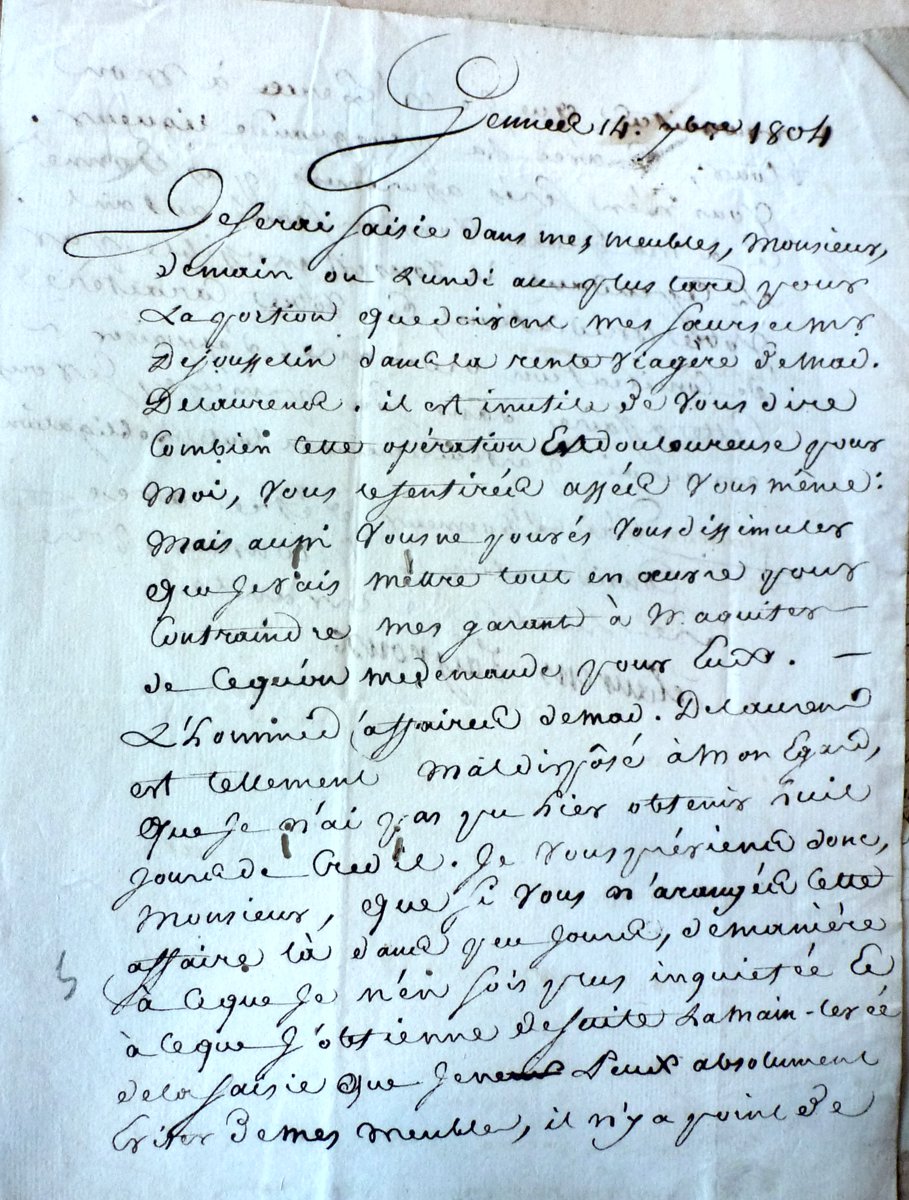 Rennes 14. 7bre 1804
Je serai saisie dans mes meubles, Monsieur,
demain ou Lundi au plus tard pour
La portion que doivent mes sœurs et mr
Dejousselin dans la rente viagere de mad.
Delaurens. il est inutile de vous dire
Combien cette opération Est douloureuse pour
Moi, vous le sentirés assés vous même:
Mais aussi vous ne pouvés vous dissimuler
que Je vais mettre tout en œuvre pour
Contraindre mes garants à s'aquiter
de ce qu'on me demande pour Eux. —
L'homme d'affaires de mad. Delaurens
est tellement mal disposé à mon Egard,
que Je n'ai pas pu hier obtenir huit
Jours de Credit. Je vous préviens donc,
Monsieur, que si vous n'arangés cette
affaire là dans peu Jours, de manière
à ce que Je n'en sois plus inquietée Et
à ce que J'obtienne de suite La main-levée
de la saisie que Je ne Peux absolument
Eviter de mes meubles, il n'y a point de